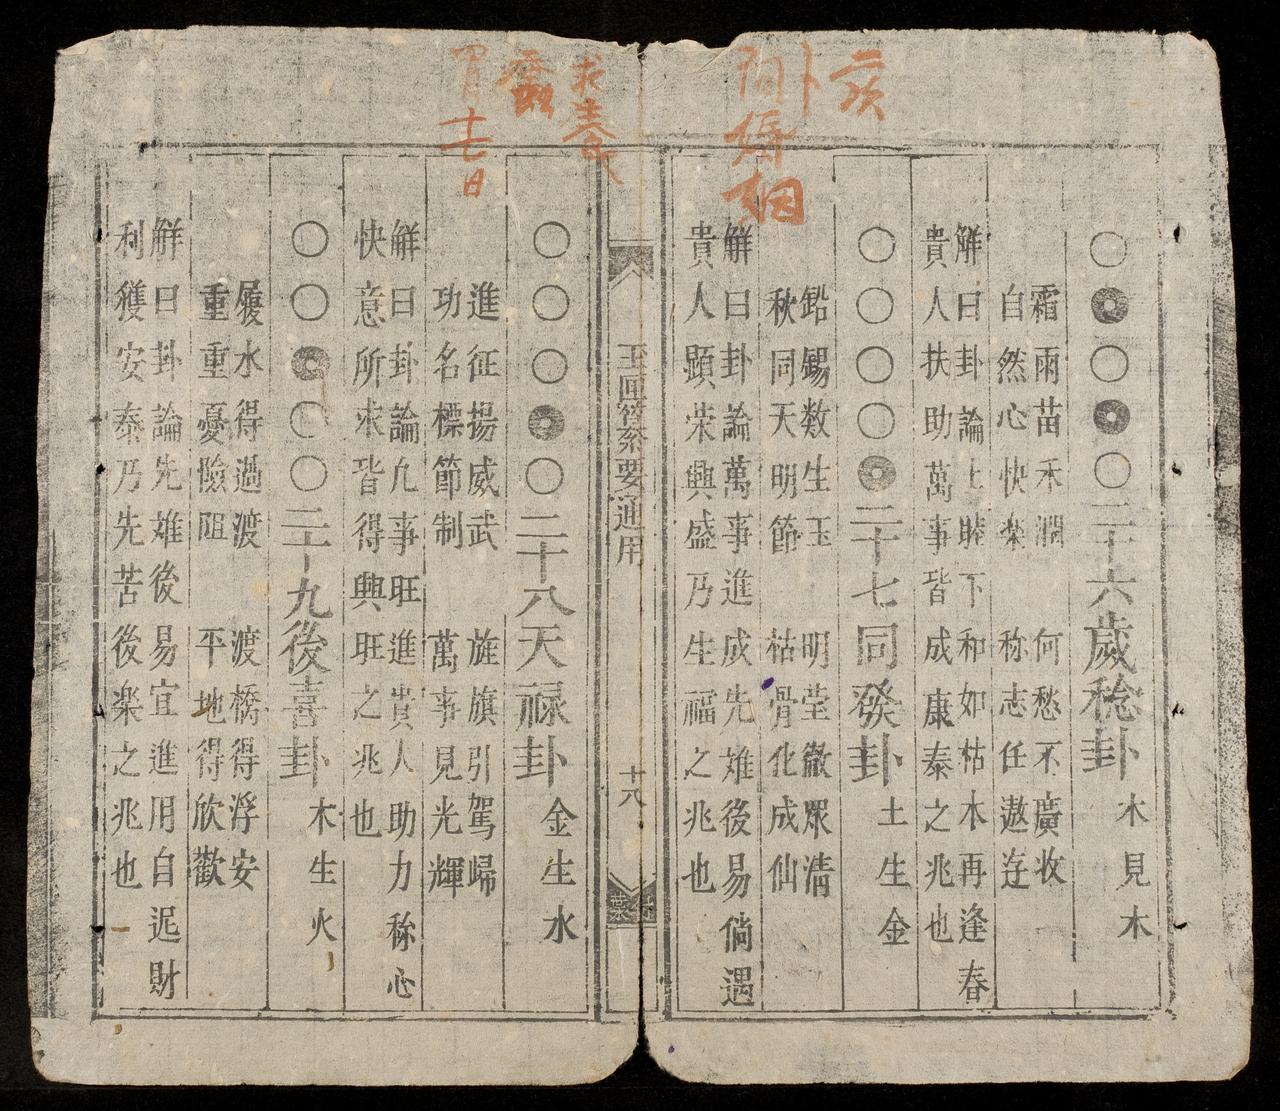 癸
卜
問婚姻
○●○●○二十六歲稔卦 木見木
霜雨苗禾潤 何愁不廣收
自然心快楽 称志任遨遊
觧曰卦論上睦下和如枯木再逢春
貴人扶助萬事皆成康泰之兆也
○○○○●二十七同發卦 土生金
鉛錫数生玉 明堂徹眾清
秋同天明節 枯骨化成仙
觧曰卦論萬事進成先难後易倘遇
貴人顕荣興盛乃生福之兆也
玉匣符祭要通用
十八
求養
蚕
四月十七日
○○○●○二十八天禄卦 金生水
進征揚威武 旌旗引駕歸
功名標節制 萬事見光輝
觧曰卦論九事旺進貴人助力称心
快意所求皆得興旺之兆也
○○●○○二十九後喜卦 木生火
履水得過渡 渡橋得浮安
重重憂險阻 平地得欣歡
觧曰卦論先雄後易宜進用自迟財
利獲安泰乃先苦後楽之兆也